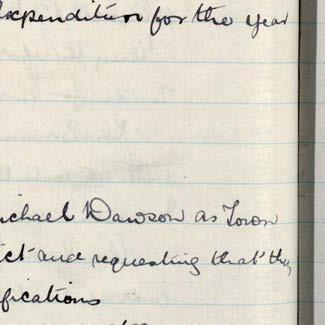 Expenditure for the Year
ichael Dawson as Town
ict and requesting that they
ifications